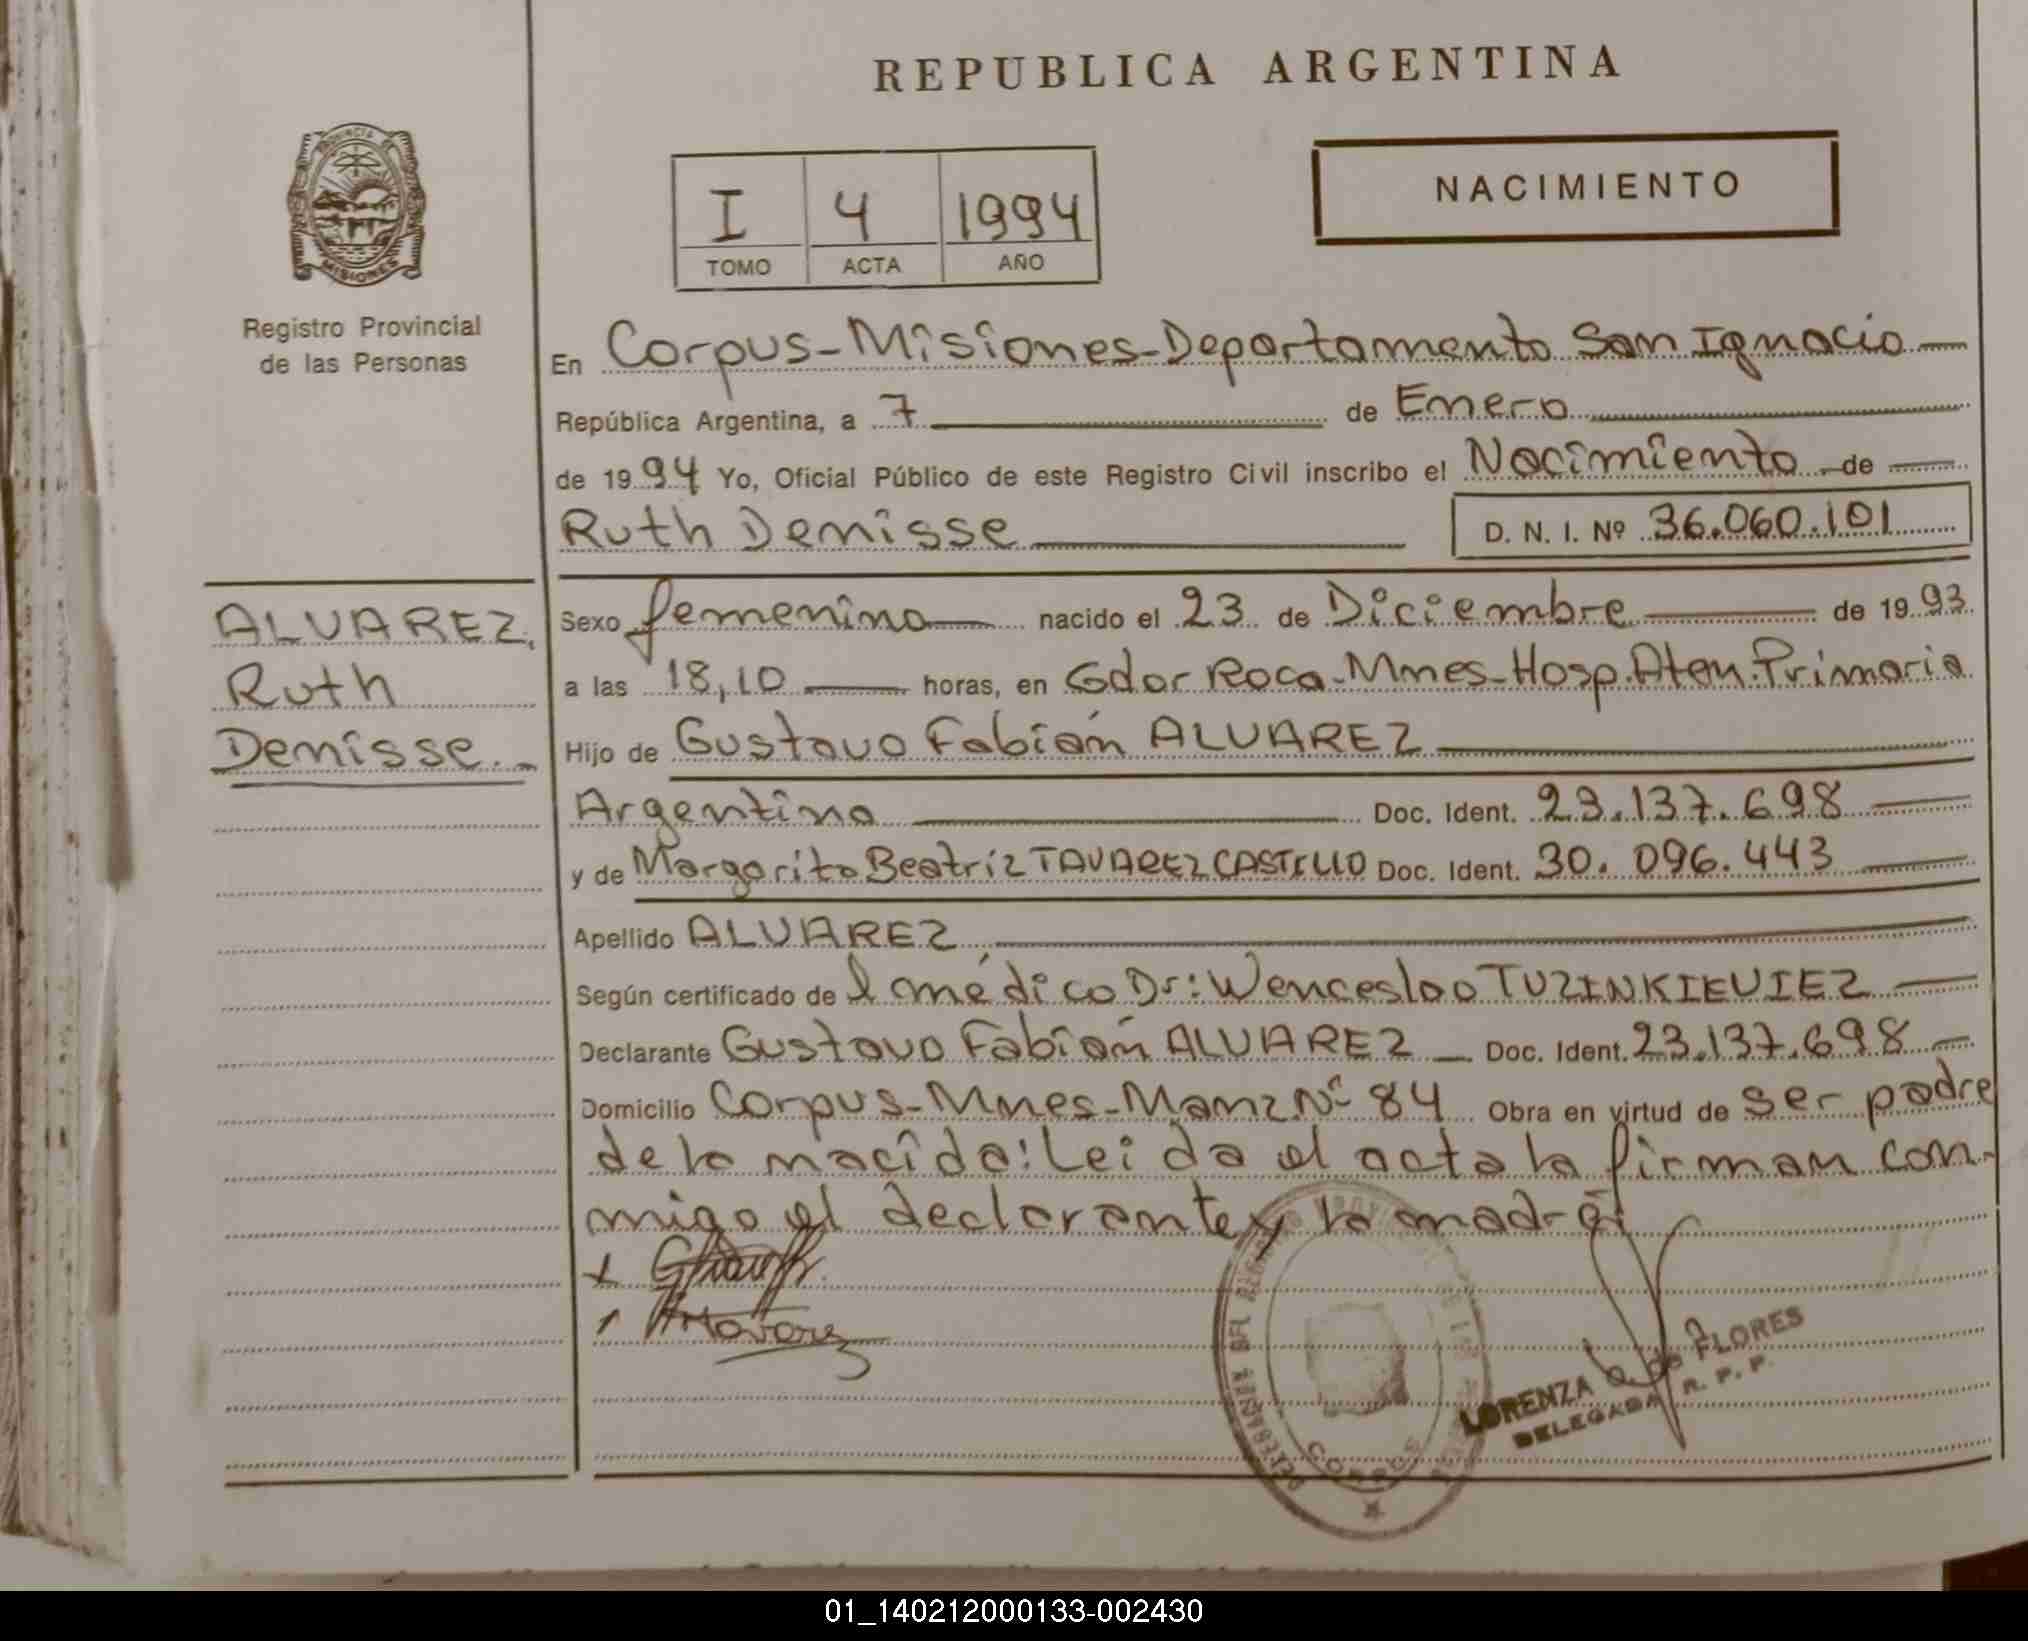 REPUBLICA ARGENTINA
PROVINCIA DE
MISIONES
Registro Provincial
de las Personas
I 4 1994
TOMO ACTA AÑO
NACIMIENTO
En Corpus-Misiones-Departamento San Ignacio
República Argentina, a 7 de Enero
de 1994 Yo, Oficial Público de este Registro Civil inscribo el Nacimiento de
Ruth Denisse D. N. I. Nº 36.060.101
ALVAREZ,
Ruth
Denisse.
Sexo femenino nacido el 23 de Diciembre de 1993
a las 18,10 horas, en Gdor Roca-Mnes-Hosp.Aten.Primaria
Hijo de Gustavo Fabián ALVAREZ
Argentino Doc. Ident. 23.137.698
y de Margarita Beatriz TAVAREZ CASTILLO Doc. Ident. 30.096.443
Apellido ALVAREZ
Según certificado de l médico Dr: Wenceslao TUZINKIEVIEZ
Declarante Gustavo Fabián ALVAREZ Doc. Ident. 23.137.698
Domicilio Corpus-Mnes-Manz Nº 84 Obra en virtud de ser padre
de la nacida: Leida el acta la firman con-
migo el declarante y la madre
CORPUS
LORENZA de FLORES
DELEGADA R. P. P.
01_140212000133-002430